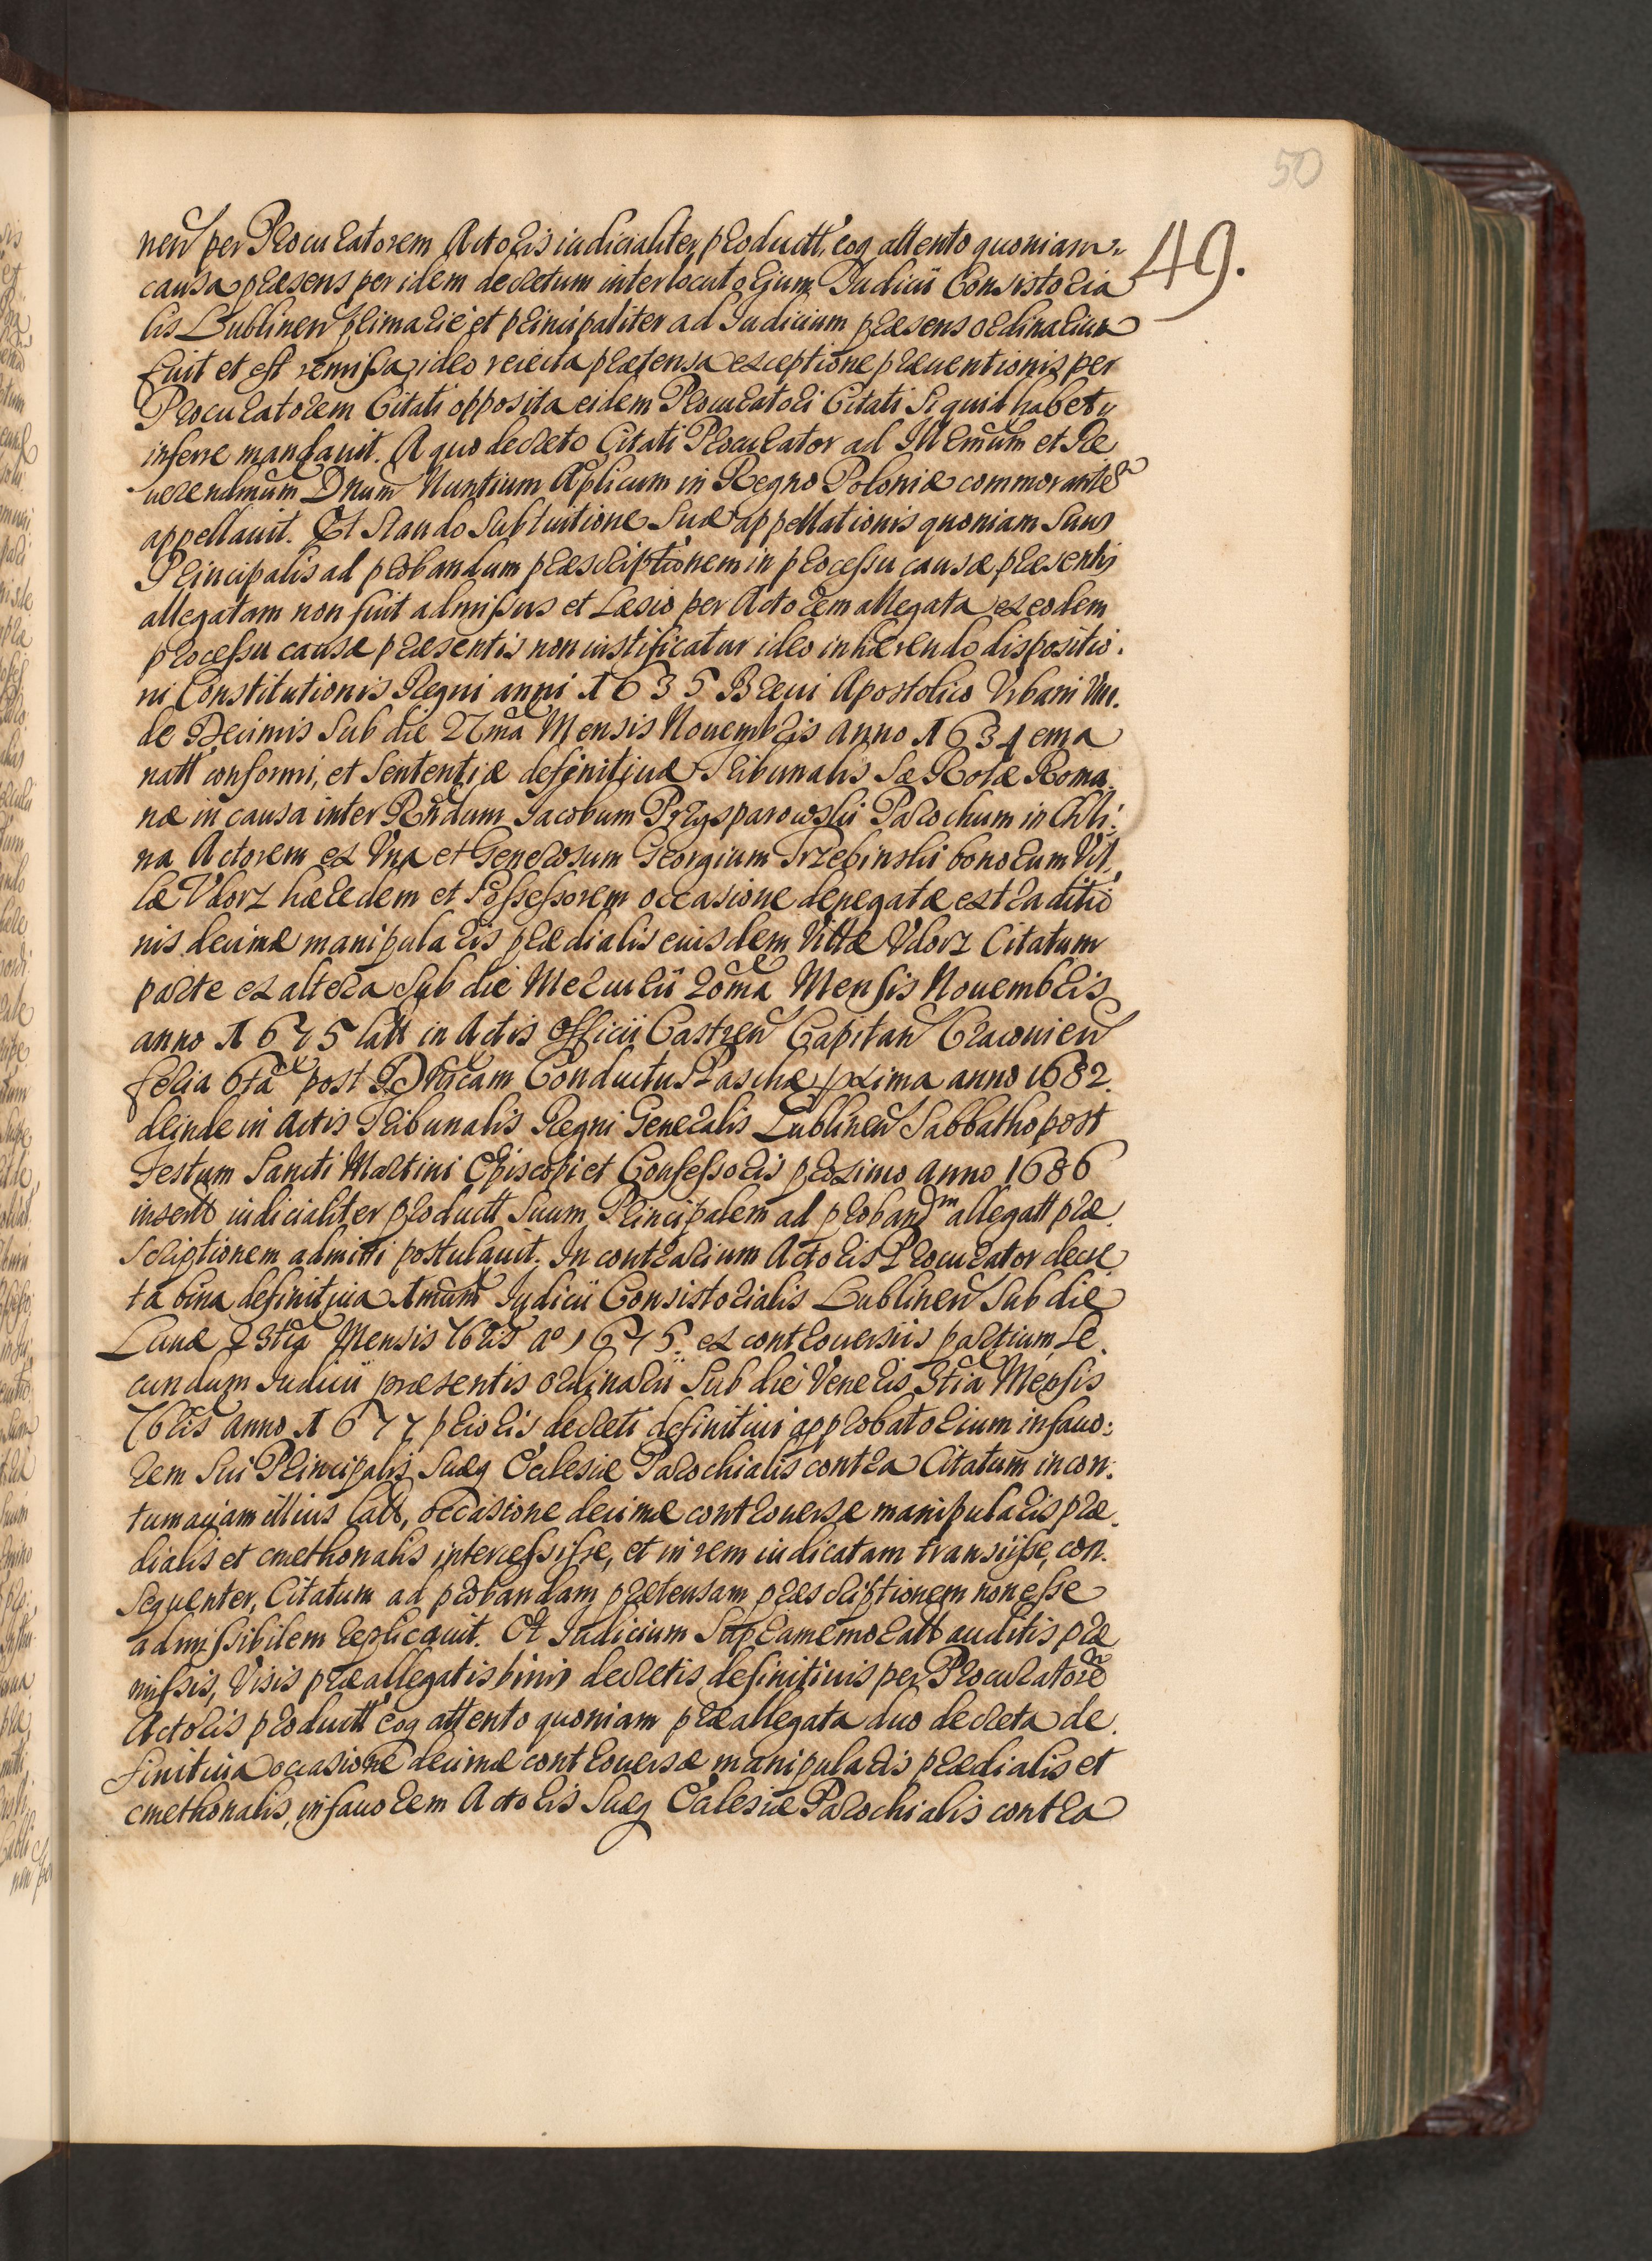 50
49.
nen per Procuratorem Actoris iudicialiter productt, eoq attento quoniam
causa præsens per idem decretum interlocutorium Iudicii Consistoria
lis Lublinen primarie et principaliter ad Iudicium præsens ordinarium
fuit et est remissa, ideo reiecta prætensa exceptione præuentionis per
Procuratorem Citati opposita eidem Procuratori Citati Si quid habet
inferre mandauit. A quo decreto Citati Procurator ad Illmum et Re
uerendmum Dnum Nuntium Aplicum in Regno Poloniæ commorante
appellauit. Et Stando Sub tuitione Suæ appellationis quoniam Suus
Principalis ad probandum præscriptionem in processu causæ præsentis
allegatam non fuit admissus et Læsio per Actorem allegata ex eodem
processu causæ præsentis non iustificatur ideo inhærendo dispositio.
ni Constitutionis Regni anni 1635 Breui Apostolico Vrbani VIII.
de Decimis Sub die 27ma Mensis Nouembris anno 1634 ema
natt conformi, et Sententiæ definitiuæ Tribunalis Sæ Rotæ Roma.
næ in causa inter Rndum Iacobum Przysparowski Parochum in Chli:
na Actorem ex Vna et Generosum Georgium Trzebinski bonorum Vil,
læ Vdorz hæredem et Possessorem occasione denegatæ extraditio
nis decimæ manipularis prædialis eiusdem Villæ Vdorz Citatum
parte ex altera Sub die Mercurii 20ma Mensis Nouembris
anno 1675 latt in Actis Officii Castren Capitan Cracouien
feria 6ta post Dnicam Conductus Paschæ prima anno 1682.
deinde in Actis Tribunalis Regni Generalis Lublinen Sabbatho post
Festum Sancti Martini Episcopi et Confessoris proximo anno 1686
insertt iudicialiter productt Suum Principalem ad proband^m allegatt præ.
Scriptionem admitti postulauit. In contrarium Actoris Procurator decre
ta bina definitiua 1mum Iudicii Consistorialis Lublinen Sub die
Lunæ 23tia Mensis 7bris a° 1675. ex controuersiis partium, Se.
cundum Iudicii præsentis ordinarii Sub die Veneris 3tia Mensis
7bris anno 1677 prioris decreti definitiui approbatorium in fauo:
rem Sui Principalis Suæq Ecclesiæ Parochialis contra Citatum in con:
tumaciam illius latt, occasione decimæ controuersæ manipularis præ.
dialis et cmethonalis intercessisse, et in rem iudicatam transiisse, con.
Sequenter, Citatum ad probandam prætensam præscriptionem non esse
admissibilem replicauit. Et Iudicium Supramemoratt auditis præ
missis, Visis præallegatis binis decretis definitiuis per Procuratore
Actoris productt eoq attento quoniam præallegata duo decreta de.
finitiua occasione decimæ controuersæ manipularis prædialis et
cmethonalis, in fauorem Actoris Suæq Ecclesiæ Parochialis contra